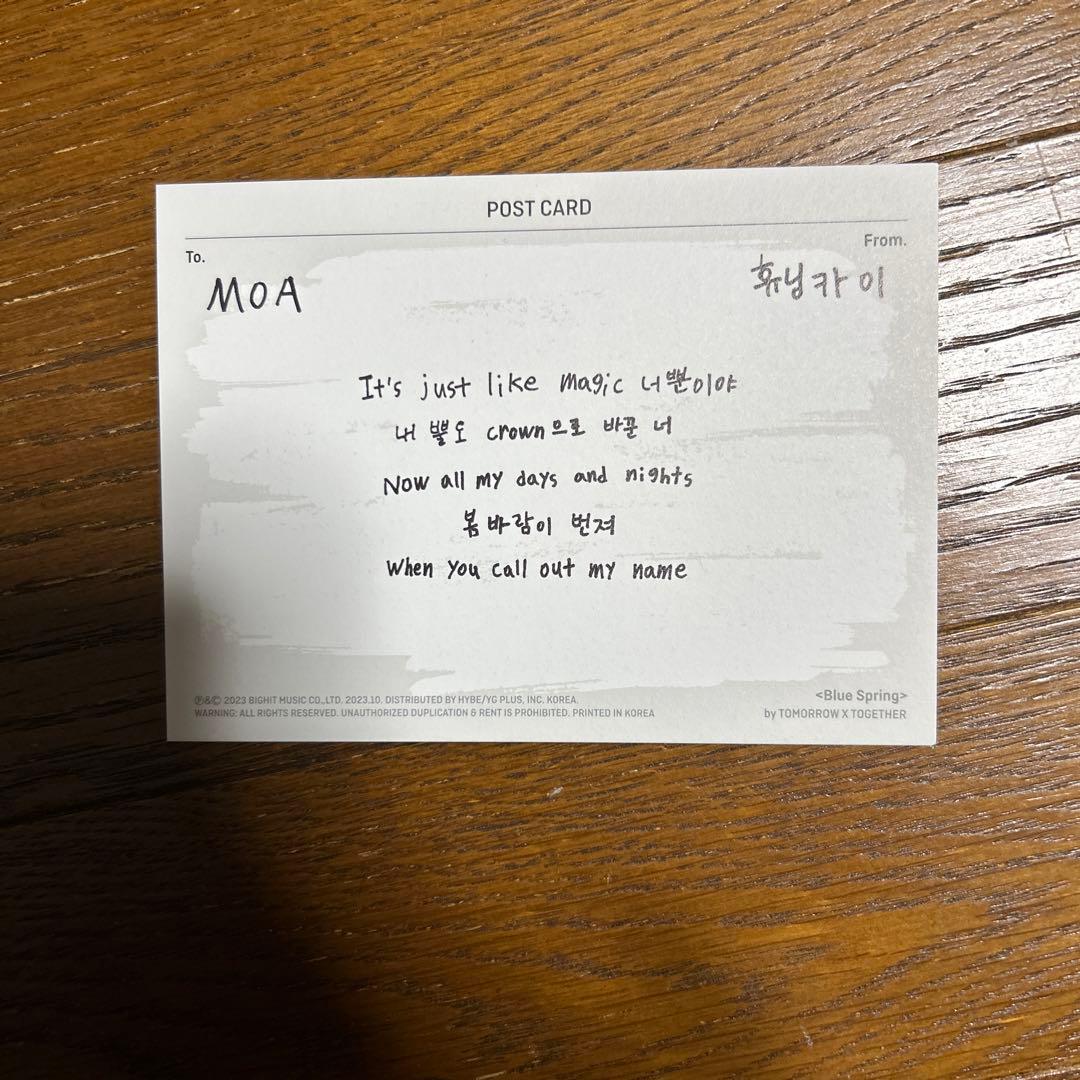 POST CARD
To.
From.
MOA
휴닝카이
It's just like magic 너뿐이야
내 뿔도 crown으로 바꾼 너
Now all my days and nights
봄바람이 번져
When you call out my name
℗&© 2023 BIGHIT MUSIC CO.,LTD. 2023.10. DISTRIBUTED BY HYBE/YG PLUS, INC. KOREA.
WARNING: ALL RIGHTS RESERVED. UNAUTHORIZED DUPLICATION & RENT IS PROHIBITED. PRINTED IN KOREA
<Blue Spring>
by TOMORROW X TOGETHER